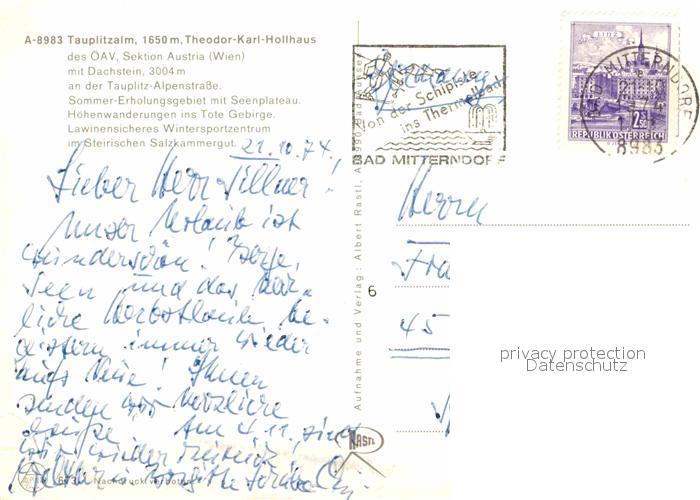 A-8983 Tauplitzalm, 1650 m, Theodor-Karl-Hollhaus
des ÖAV, Sektion Austria (Wien)
mit Dachstein, 3004 m
an der Tauplitz-Alpenstraße.
Sommer-Erholungsgebiet mit Seenplateau.
Höhenwanderungen ins Tote Gebirge.
Lawinensicheres Wintersportzentrum
im Steirischen Salzkammergut.
21.10.74
Lieber Herr Tillner!
Unser Urlaub ist
wunderschön! Berge,
Seen und das herr-
liche Herbstlaub be-
geistern immer wieder
aufs Neue! Ihnen
senden wir herzliche
Grüße. Am 4.11. sind
wir wieder
Brigitte
Nachdruck verboten
Aufnahme und Verlag: Albert Rastl, A-8990 Bad Aussee
6
RASTL
Von der Schipiste
ins Thermalbad
BAD MITTERNDORF
LINZ
2.50
REPUBLIK ÖSTERREICH
BAD MITTERNDORF
8983
Herrn
Fra
45
privacy protection
Datenschutz